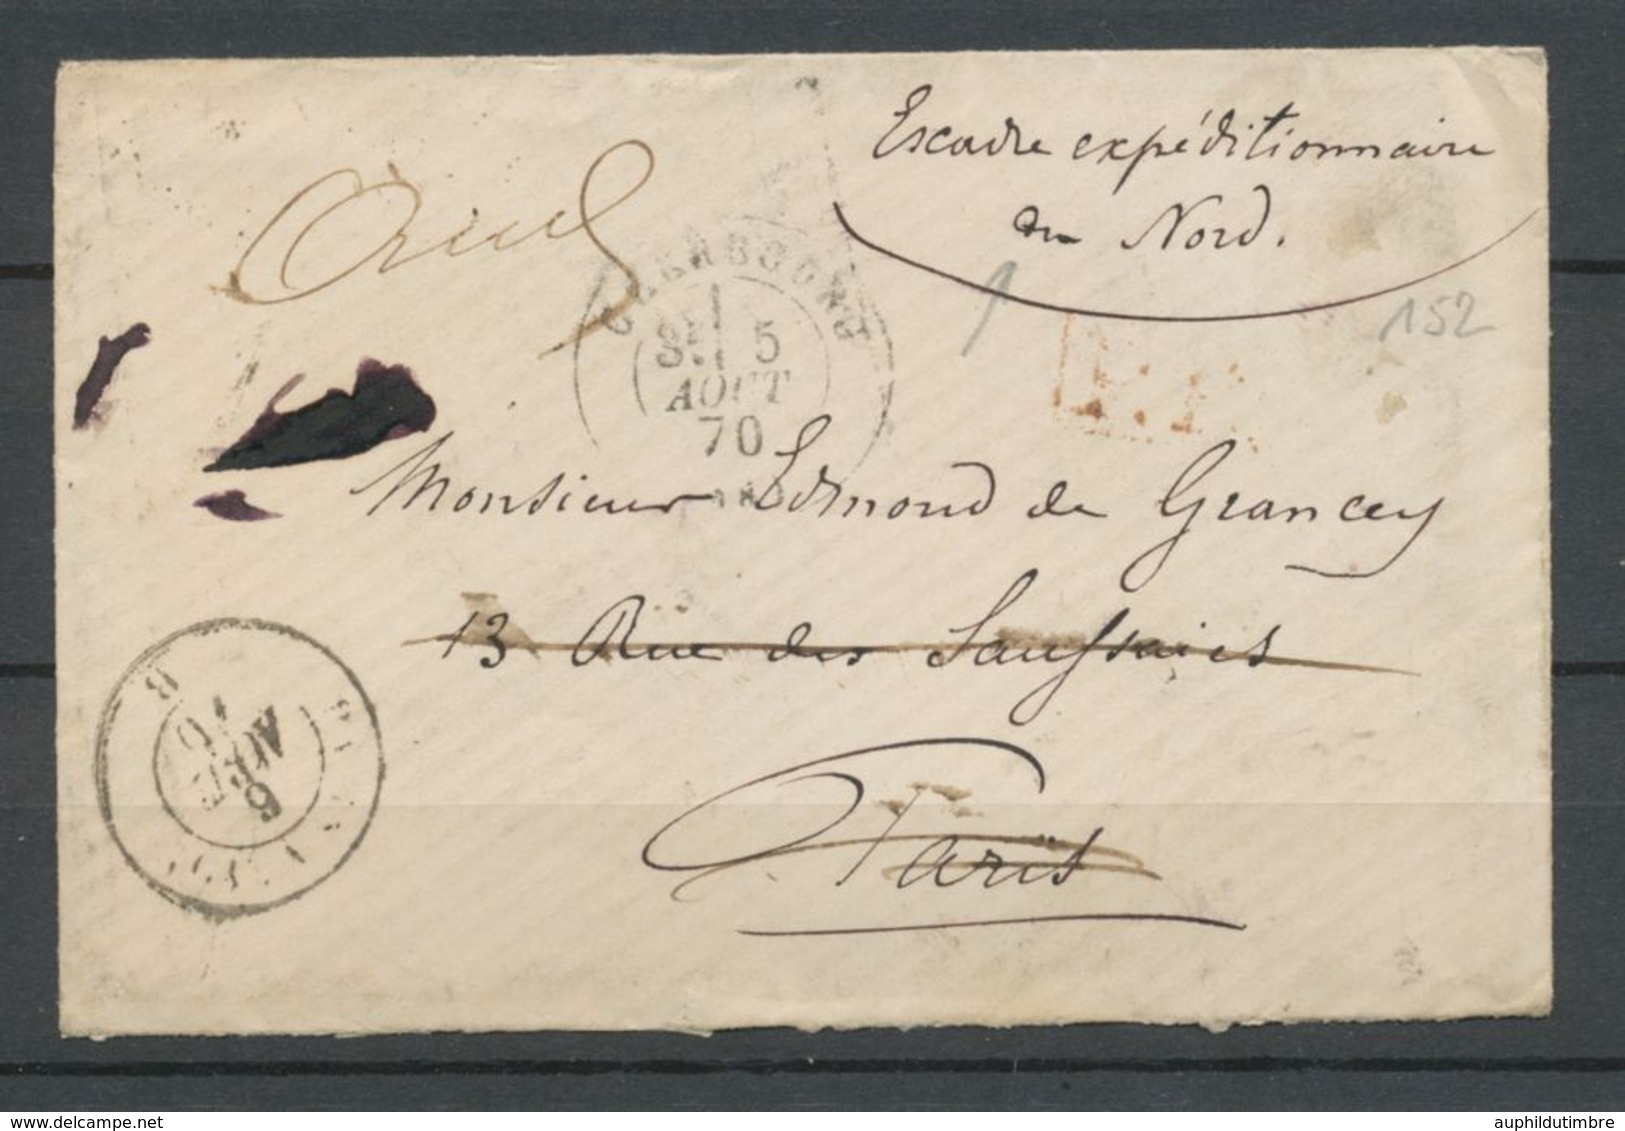 Escadre expéditionnaire
du Nord.
CHERBOURG
5
AOUT
70
152
Monsieur Edmond de Grancey
13 Rue des Saussaies
Paris
6
AOUT
auphildutimbre.com